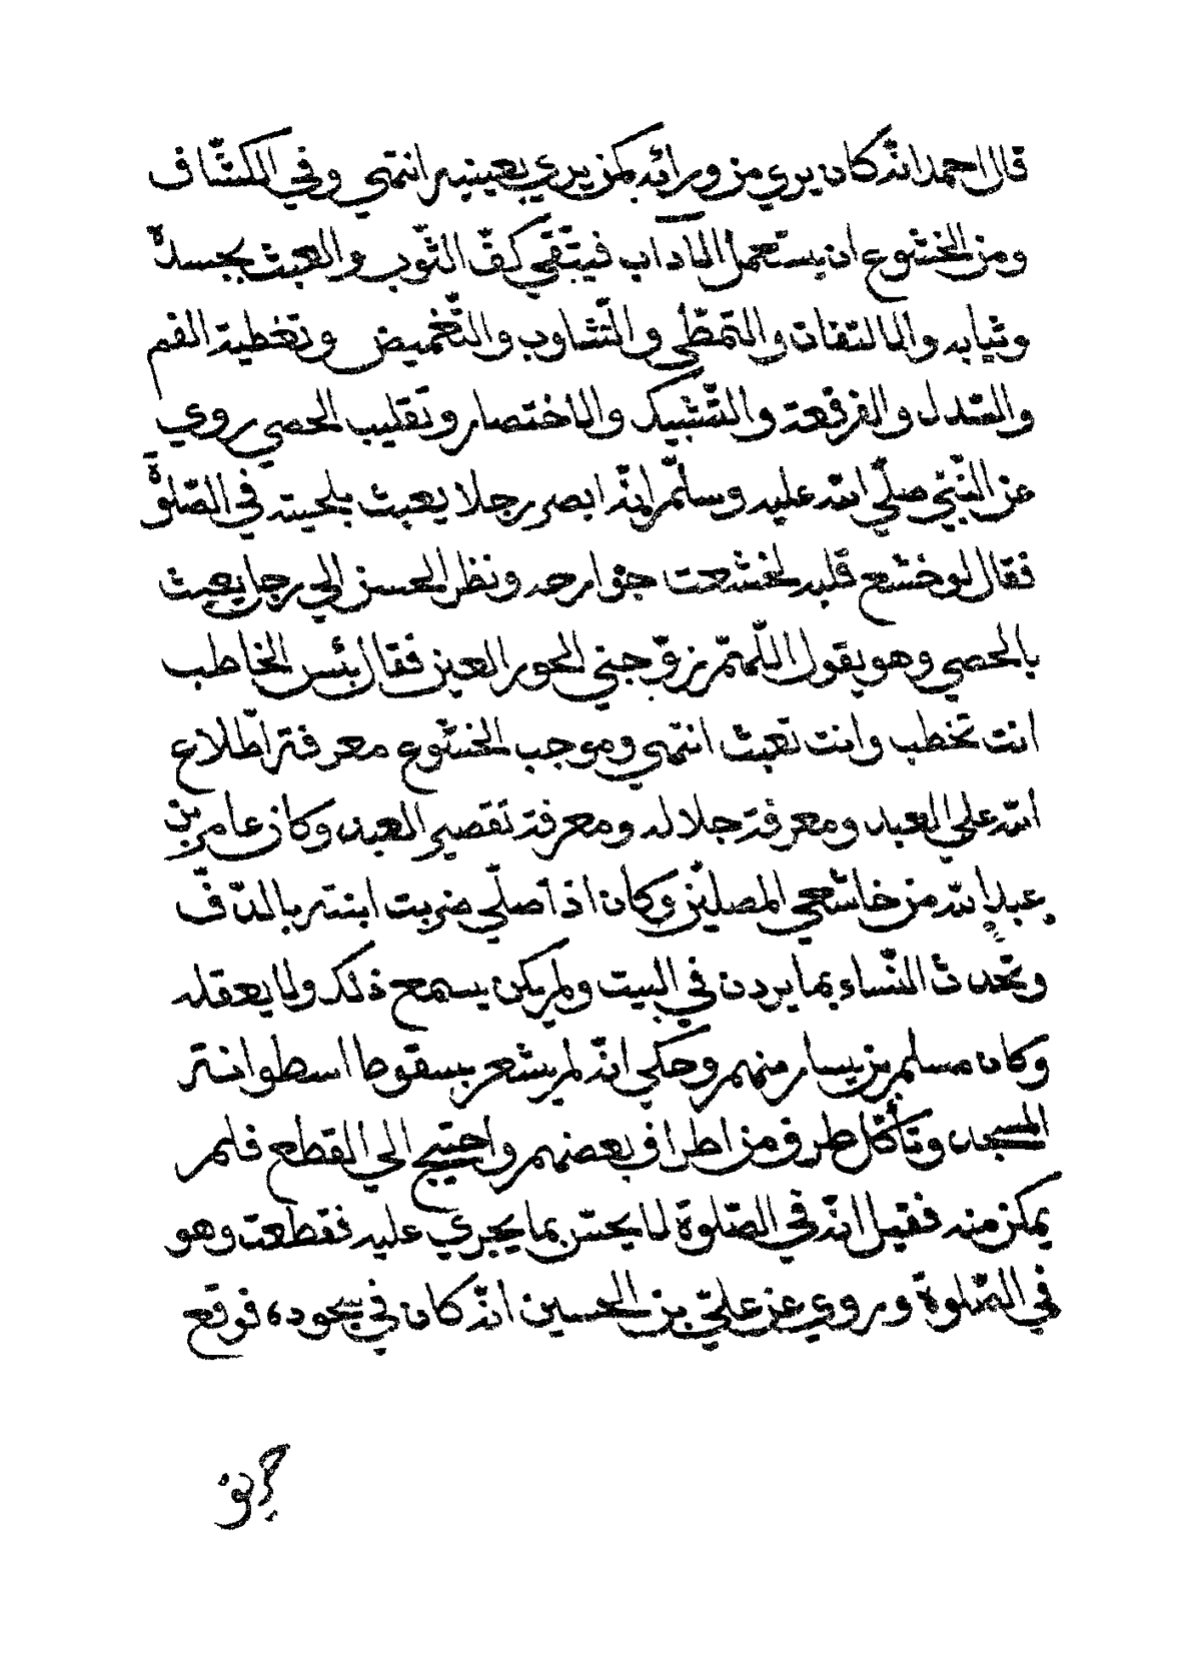 قال احمد انّه كان يري من ورائه كمن يري بعينيه انتهي وفي الكشّاف
ومن الخشوع ان يستعمل الآداب فيتّقي كفّ الثّوب والعبث بجسده
وثيابه والالتفات والتمطّي والتّثاوب والتّغميض وتغطية الفم
والسّدل والفرقعة والتّشبيك والاختصار وتقليب الحصي روي
عن النّبيّ صلّي الله عليه وسلّم انّه ابصر رجلا يعبث بلحيته في الصّلوة
فقال لو خشع قلبه لخشعت جوارحه ونظر الحسن الي رجل يعبث
بالحصي وهو يقول اللّهمّ زوّجني الحور العين فقال بئس الخاطب
انت تخطب وانت تعبث انتهي وموجب الخشوع معرفة اطّلاع
الله علي العبد ومعرفة جلاله ومعرفة تقصير العبد وكان عامر بن
عبد الله من خاشعي المصلّين وكان اذا صلّي ضربت ابنته بالدّفّ
وتحدّث النّساء بما يردن في البيت ولم يكن يسمع ذلك ولا يعقله
وكان مسلم بن يسار منهم وحكي انّه لم يشعر بسقوط اسطوانة
المسجد وتأكّل طرف من اطراف بعضهم واحتيج الي القطع فلم
يمكن منه فقيل انّه في الصّلوة لا يحسّ بما يجري عليه فقطعت وهو
في الصّلوة وروي عن عليّ بن الحسين انّه كان في سجوده فوقع